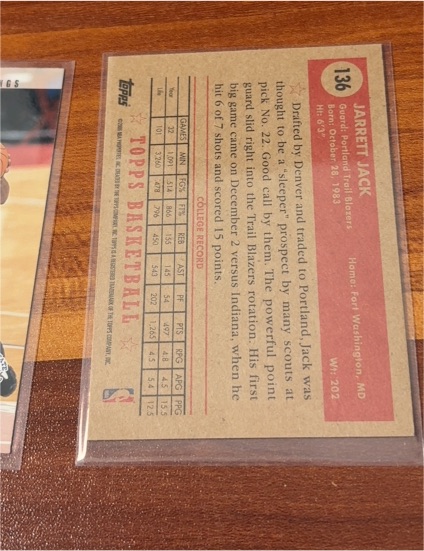 NGS
136
JARRETT JACK
Guard: Portland Trail Blazers Home: Fort Washington, MD
Born: October 28, 1983
Ht: 6'3" Wt: 202
Drafted by Denver and traded to Portland, Jack was
thought to be a "sleeper" prospect by many scouts at
pick No. 22. Good call by them. The powerful point
guard slid right into the Trail Blazers rotation. His first
big game came on December 2 versus Indiana, when he
hit 6 of 7 shots and scored 15 points.
COLLEGE RECORD
GAMES MIN FG% FT% REB AST PF PTS RPG APG PPG
Year 32 .514 .866 155 145 54 497 4.8 4.5 15.5
Life 101 3,260 .478 .796 450 543 202 1,265 4.5 5.4 12.5
TOPPS BASKETBALL
topps
NBA